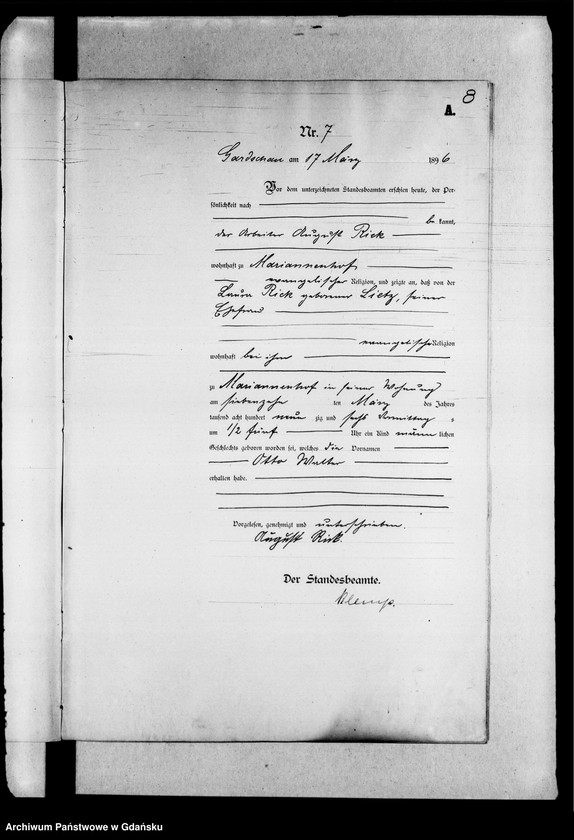 8
A.
Nr. 7
Gardschau am 17 März 1896
Vor dem unterzeichneten Standesbeamten erschien heute, der Per-
sönlichkeit nach
be kannt,
der Arbeiter August Rick
wohnhaft zu Mariannenhof
evangelischer Religion, und zeigte an, daß von der
Laura Rick geborene Lietz, seiner
Ehefrau
evangelischer Religion
wohnhaft bei ihm
zu Mariannenhof in seiner Wohnung
am siebenzehn ten März des Jahres
tausend acht hundert neun zig und sechs Vormittag s
um 1/2 fünf Uhr ein Kind männ lichen
Geschlechts geboren worden sei, welches die Vornamen
Otto Walter
erhalten habe.
Vorgelesen, genehmigt und unterschrieben.
August Rick.
Der Standesbeamte.
Klemp.
Archiwum Państwowe w Gdańsku